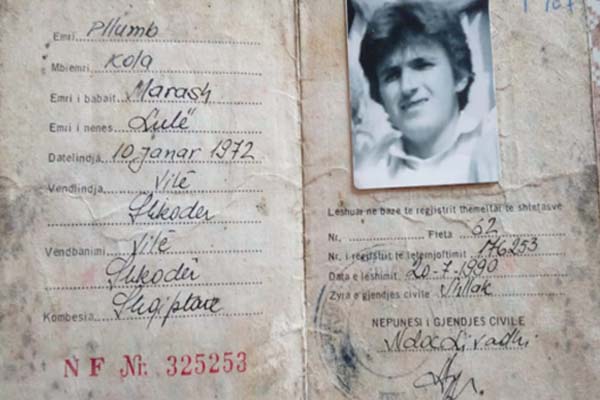 Emri Pllumb
Mbiemri Kola
Emri i babait Marash
Emri i nënes Lulë
Datelindja 10 janar 1972
Vendlindja Vilë
Shkodër
Vendbanimi Vilë
Shkodër
Kombesia Shqiptare
N F Nr. 325253
Leshuar ne baze te regjistrit themeltar te shtetasve
Nr. Fleta 62
Nr. i regjistrit te leternjoftimit 176253
Data e leshimit 20-7-1990
Zyra e gjendjes civile
NEPUNESI i GJENDJES CIVILE